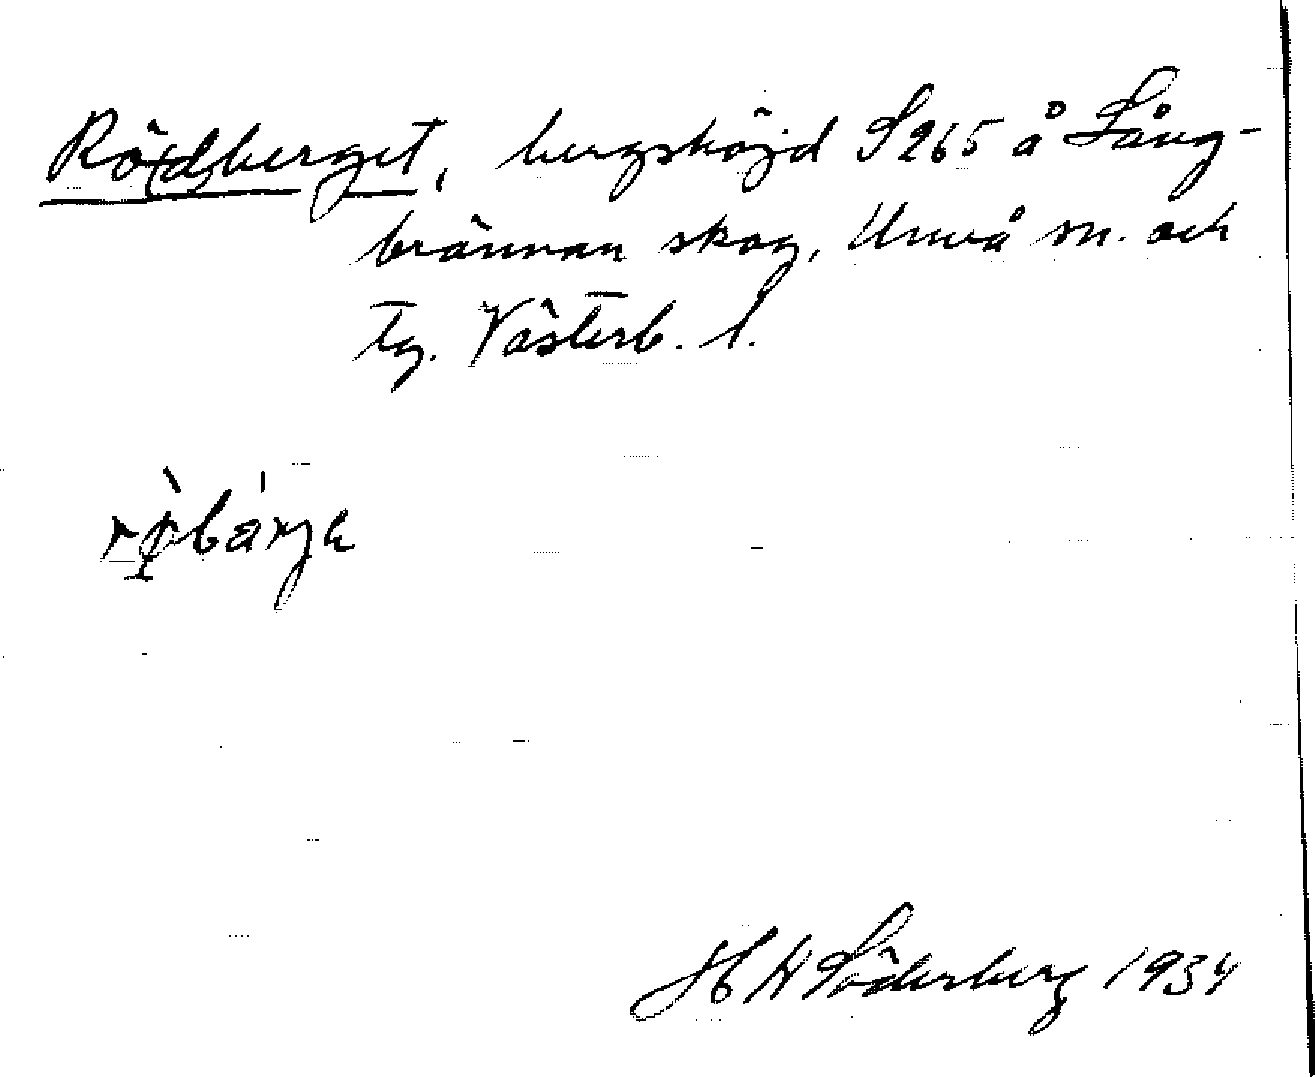 Rö(d)berget, bergshöjd S 265 å Lång-
brännan skog, Umeå sn. och
tg. Västerb. l.
H Söderberg 1934